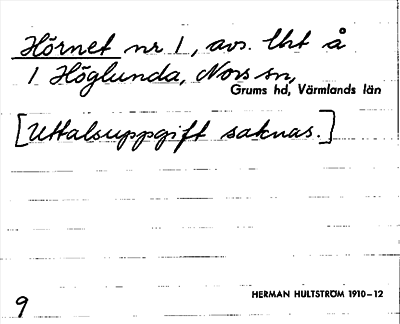 Hörnet nr 1, avs. lht å
1 Höglunda, Nors sn,
Grums hd, Värmlands län
[Uttalsuppgift saknas.]
HERMAN HULTSTRÖM 1910–12
9